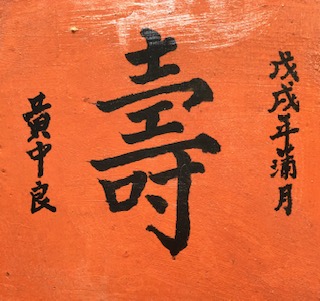 戊戌年蒲月
壽
黃中良